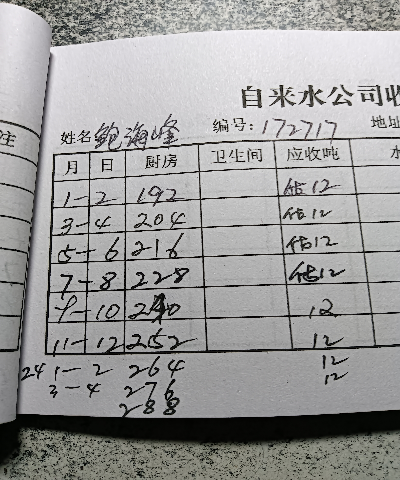 自来水公司收
姓名 鲍海峰 编号: 172717 地址
月 日 厨房 卫生间 应收吨 水
1-2 192 估12
3-4 204 估12
5-6 216 估12
7-8 228 估12
9-10 240 12
11-12 252 12
24 1-2 264 12
3-4 276 12
288
注